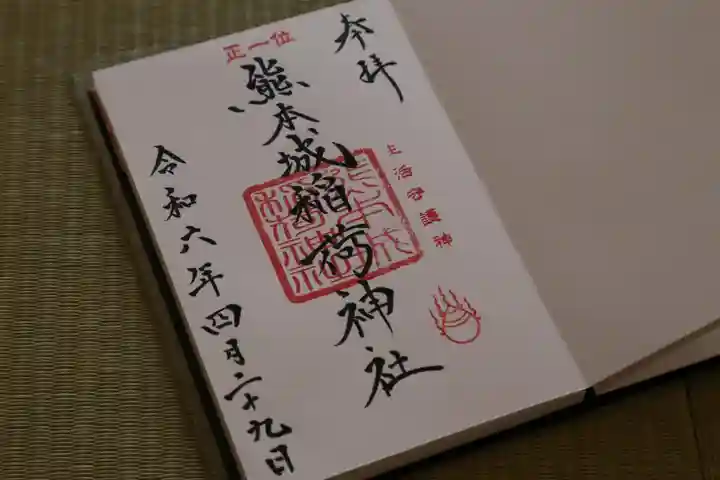 奉拝
生活守護神
正一位
熊本城稲荷神社
令和六年四月二十九日